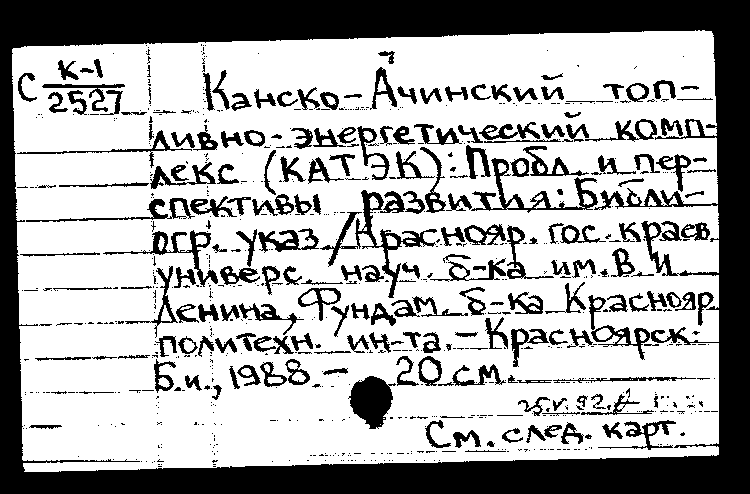 С К-1
2527
Канско-Ачинский топ-
ливно-энергетический комп-
лекс (КАТЭК): Пробл. и пер-
спективы развития: Библи-
огр. указ. / Краснояр. гос. краев.
универс. науч. б-ка им. В. И.
Ленина, Фундам. б-ка Краснояр.
политехн. ин-та. - Красноярск:
Б.и., 1988. - 20 см.
25.V.92.
См. след. карт.